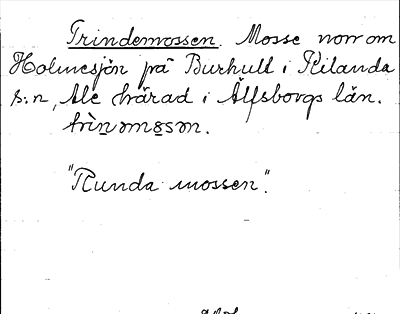 Trindemossen. Mosse norr om
Holmesjön på Burhult i Kilanda
s:n, Ale härad i Älfsborgs län.
trìnəmɷsən.
"Runda mossen".